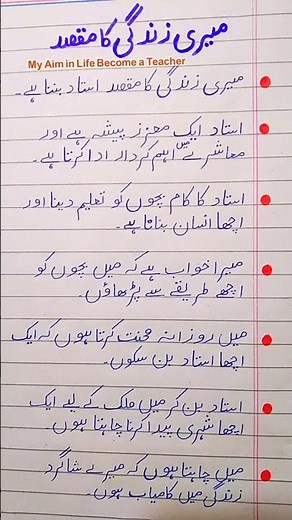 میری زندگی کا مقصد
My Aim in Life Become a Teacher
میری زندگی کا مقصد استاد بننا ہے۔
استاد ایک معزز پیشہ ہے اور
معاشرے میں اہم کردار ادا کرتا ہے۔
استاد کا کام بچوں کو تعلیم دینا اور
اچھا انسان بنانا ہے۔
میرا خواب ہے کہ میں بچوں کو
اچھے طریقے سے پڑھاؤں۔
میں روزانہ محنت کرتا ہوں کہ ایک
اچھا استاد بن سکوں۔
استاد بن کر میں ملک کے لیے ایک
اچھا شہری پیدا کرنا چاہتا ہوں۔
میں چاہتا ہوں کہ میرے شاگرد
زندگی میں کامیاب ہوں۔